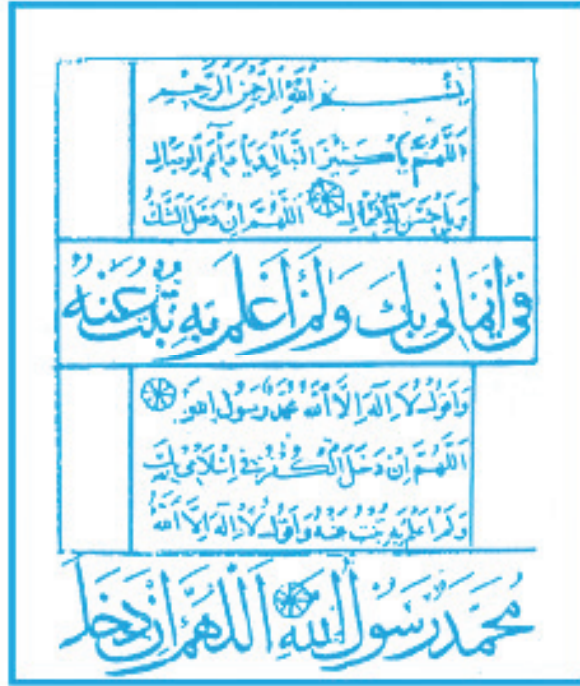 بِسْمِ اللّٰهِ الرَّحْمٰنِ الرَّحِيْمِ
اَللّٰهُمَّ يَا كَثِيْرَ النَّوَالِ وَيَا دَآئِمَ الْوِصَالِ
وَيَا حُسْنَ الْفِعَالِ اَللّٰهُمَّ اِنْ دَخَلَ الشَّكُّ
فِيْ اِيْمَانِيْ بِكَ وَلَمْ اَعْلَمْ بِهٖ تُبْتُ عَنْهُ
وَاَقُوْلُ لَا اِلٰهَ اِلَّا اللّٰهُ مُحَمَّدٌ رَّسُوْلُ اللّٰهِ
اَللّٰهُمَّ اِنْ دَخَلَ الْكُفْرُ فِيْ اِسْلَامِيْ بِكَ
وَلَمْ اَعْلَمْ بِهٖ تُبْتُ عَنْهُ وَاَقُوْلُ لَا اِلٰهَ اِلَّا اللّٰهُ
مُحَمَّدٌ رَّسُوْلُ اللّٰهِ اَللّٰهُمَّ اِنْ دَخَلَ